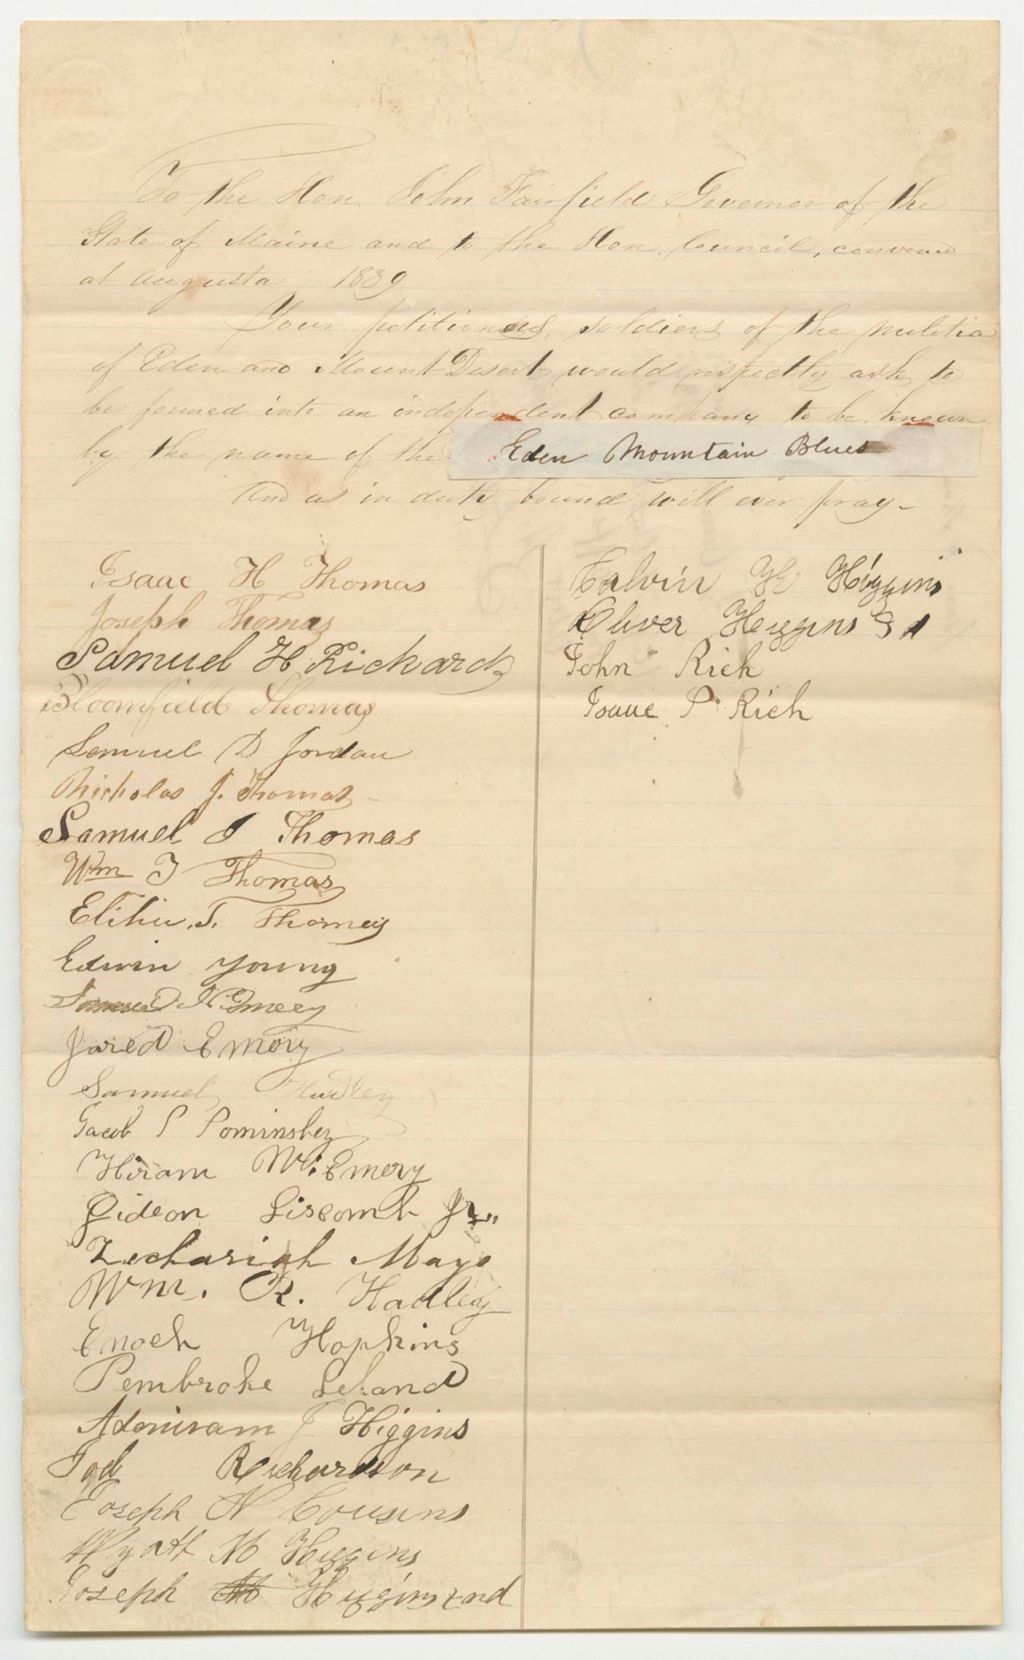 To the Hon. John Fairfield Governor of the
State of Maine and to the Hon. Council, convened
at Augusta 1839
Your petitioners, soldiers of the militia
of Eden and Mount Desert would respectly ask to
be formed into an independent company to be known
by the name of the Eden Mountain Blues
And as in duty bound will ever pray-
Isaac H Thomas
Joseph Thomas
Samuel H Richards
Bloomfield Thomas
Samuel D Jordan
Nicholas J. Thomas
Samuel J Thomas
Wm T Thomas
Elihu. T. Thomas
Edwin Young
Samuel N Emery
Jared Emory
Samuel Hadley
Jacob S
Hiram W. Emery
Gideon Liscomb Jr.
Zechariah Mayo
Wm. R. Hadley
Enoch Hopkins
Pembroke Leland
Adoniram J Higgins
Richardson
Joseph N Cousins
Wyatt M Higgins
Joseph M Higgins 2nd
Calvin H Higgins
Oliver Higgins 3d
John Rich
Isaac P Rich